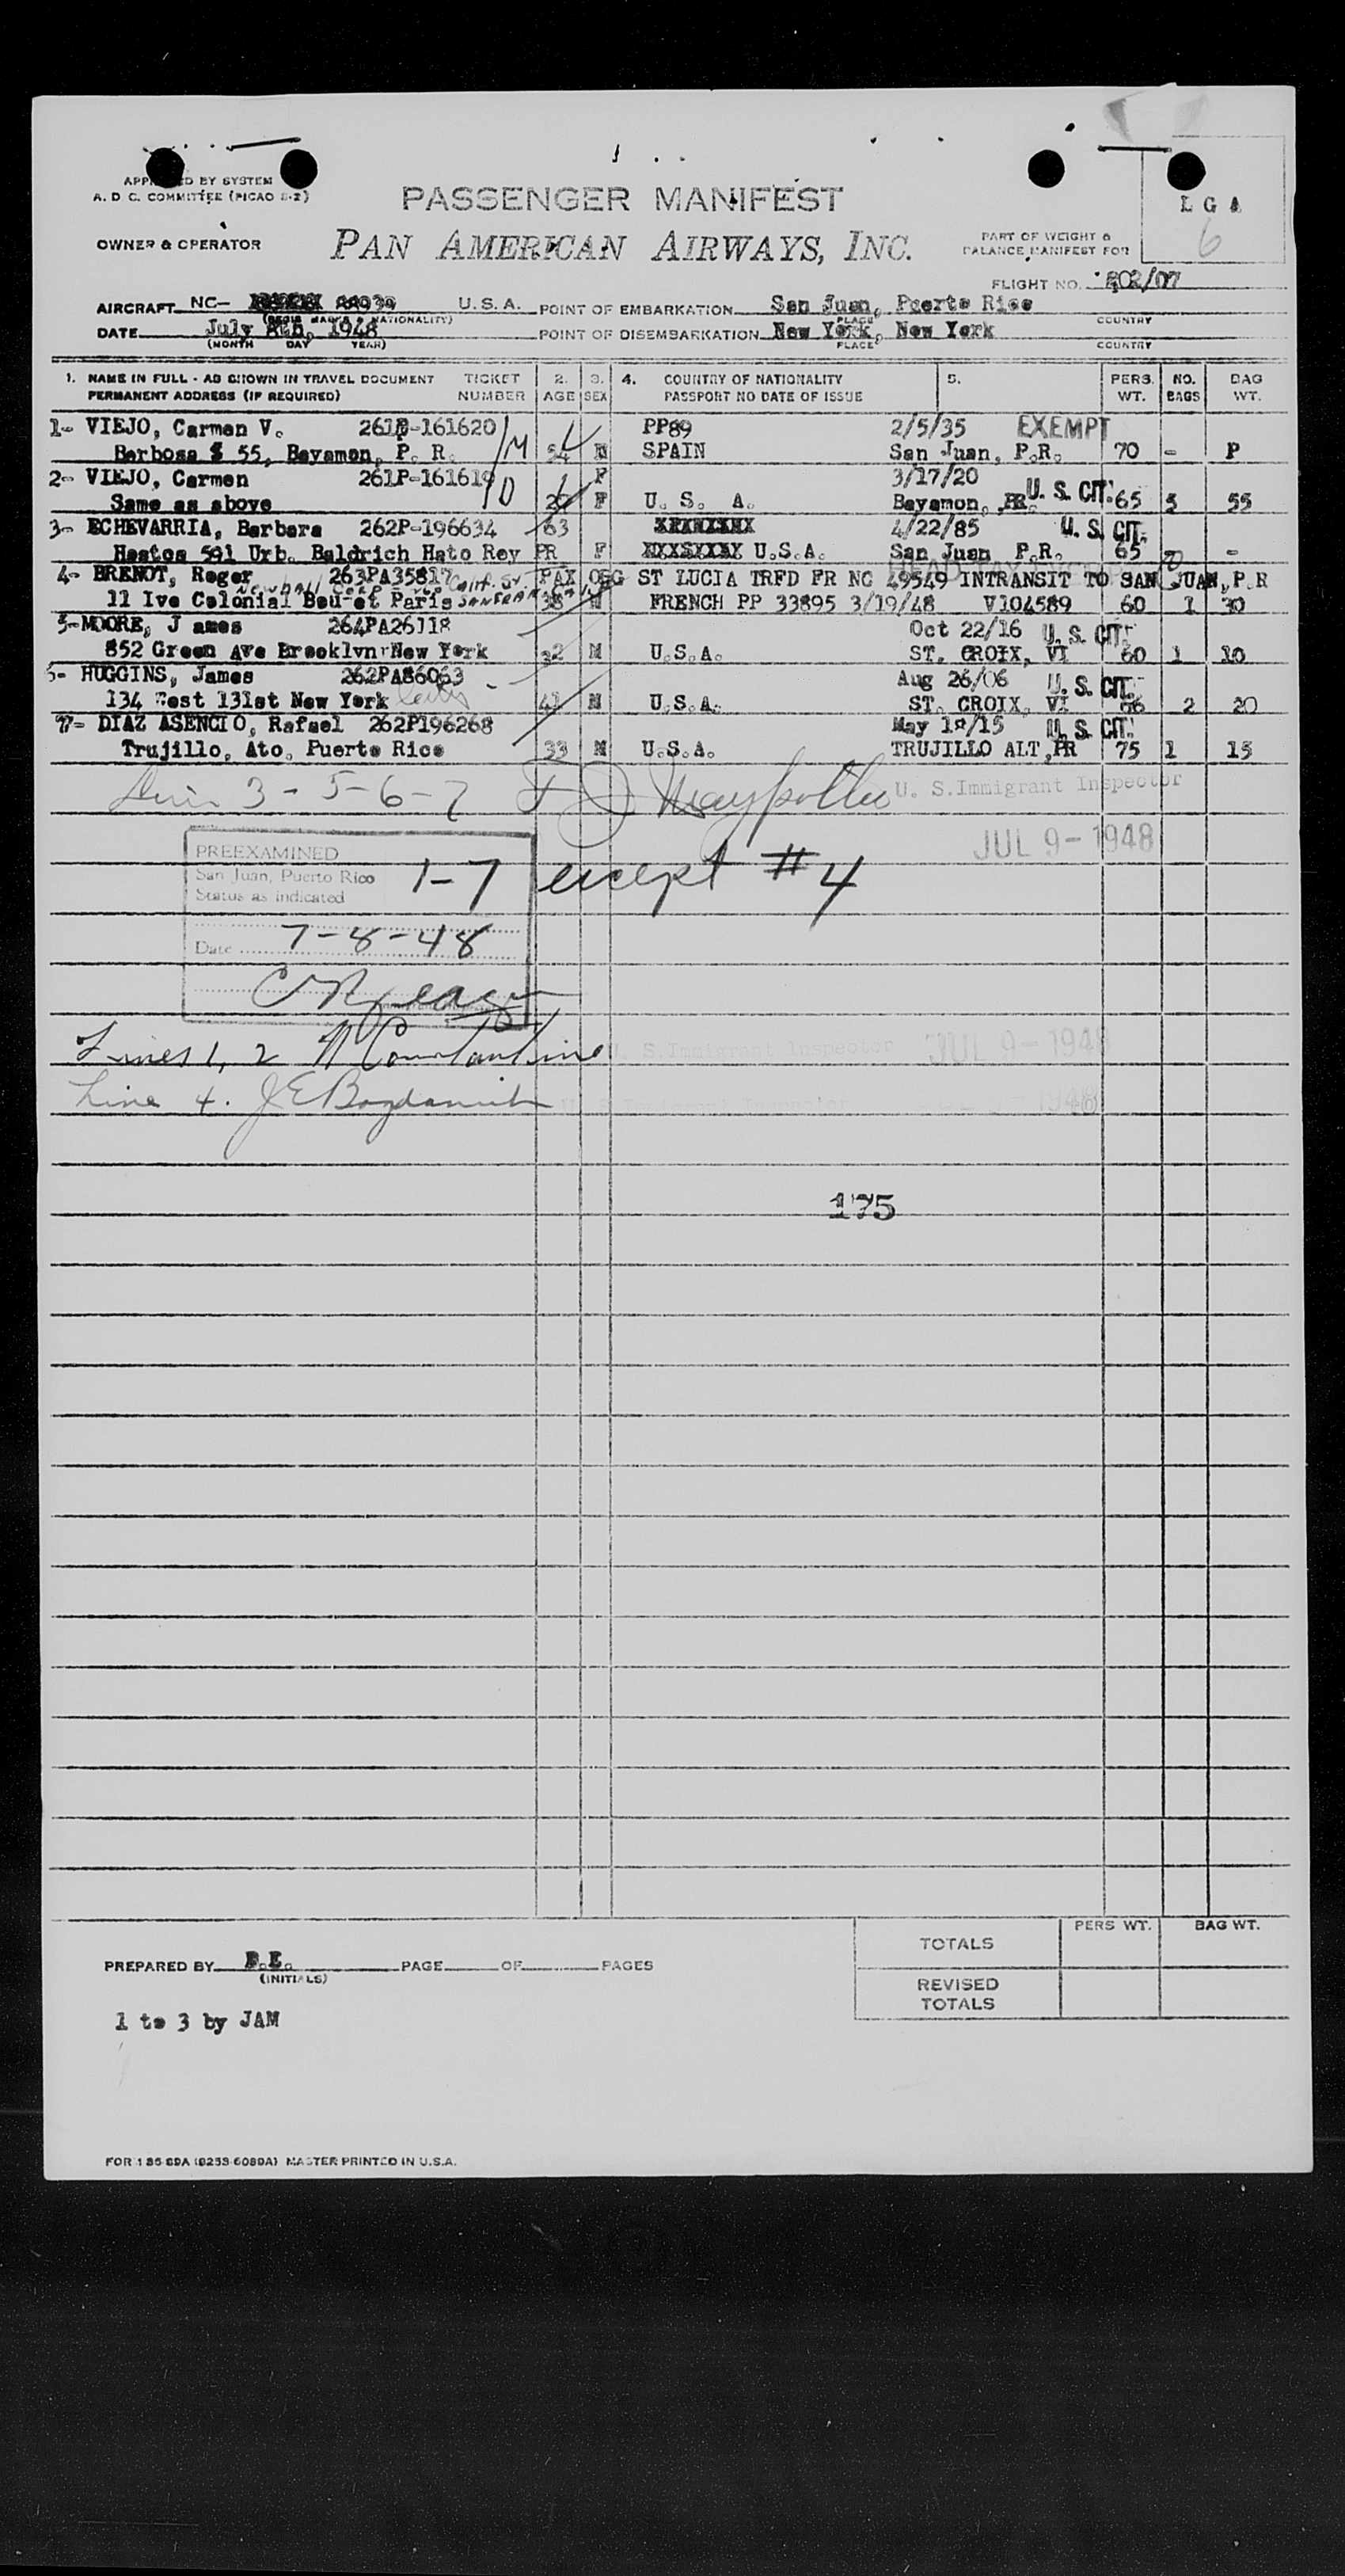 APPROVED BY SYSTEM
A. D. C. COMMITTEE (PICAO S-2)
PASSENGER MANIFEST
L G A
6
OWNER & OPERATOR
PAN AMERICAN AIRWAYS, INC.
PART OF WEIGHT &
BALANCE MANIFEST FOR
FLIGHT NO. 202/07
AIRCRAFT NC- 88939 U.S.A. POINT OF EMBARKATION San Juan, Puerto Rico
(REGIS MARKS & NATIONALITY) PLACE COUNTRY
DATE July 8th, 1948 POINT OF DISEMBARKATION New York, New York
(MONTH DAY YEAR) PLACE COUNTRY
1. NAME IN FULL - AS SHOWN IN TRAVEL DOCUMENT TICKET 2. 3. 4. COUNTRY OF NATIONALITY 5. PERS. NO. BAG
PERMANENT ADDRESS (IF REQUIRED) NUMBER AGE SEX PASSPORT NO DATE OF ISSUE WT. BAGS WT.
1- VIEJO, Carmen V. 261P-161620 PP89 2/5/35 EXEMPT
Barbosa $ 55, Bayamon, P. R. M 54 M SPAIN San Juan, P.R. 70 - P
2- VIEJO, Carmen 261P-161619 F 3/17/20
Same as above D F U. S. A. Bayamon, PR. U. S. CIT. 65 5 55
3- ECHEVARRIA, Barbara 262P-196634 63 4/22/85 U. S. CIT.
Hestos 541 Urb. Baldrich Hato Rey PR F U.S.A. San Juan P.R. 65 -
4- BRENOT, Roger 263PA35817 PAX ORG ST LUCIA TRFD FR NC 49549 INTRANSIT TO SAN JUAN, P R
11 Ive Colonial Bou-et Paris 38 M FRENCH PP 33895 3/19/48 V104589 60 1 30
5-MOORE, J ames 264PA26118 Oct 22/16 U. S. CIT.
852 Green Ave Brooklyn New York 32 M U.S.A. ST. CROIX, VI 60 1 10
6- HUGGINS, James 262PA86063 Aug 26/06 U. S. CIT.
134 West 131st New York 41 M U.S.A. ST. CROIX, VI 66 2 20
7- DIAZ ASENCIO, Rafael 262P196268 May 18/15 U. S. CIT.
Trujillo, Ato, Puerto Rico 33 M U.S.A. TRUJILLO ALT,PR 75 1 15
3-5-6-7 U. S. Immigrant Inspector
JUL 9-1948
PREEXAMINED
San Juan, Puerto Rico
Status as indicated
1-7 except #4
Date 7-8-48
Lines 1, 2 N Constantine U. S. Immigrant Inspector JUL 9-1948
Line 4.
175
TOTALS PERS WT. BAG WT.
PREPARED BY (INITIALS) PAGE OF PAGES
REVISED
TOTALS
1 to 3 by JAM
MASTER PRINTED IN U.S.A.